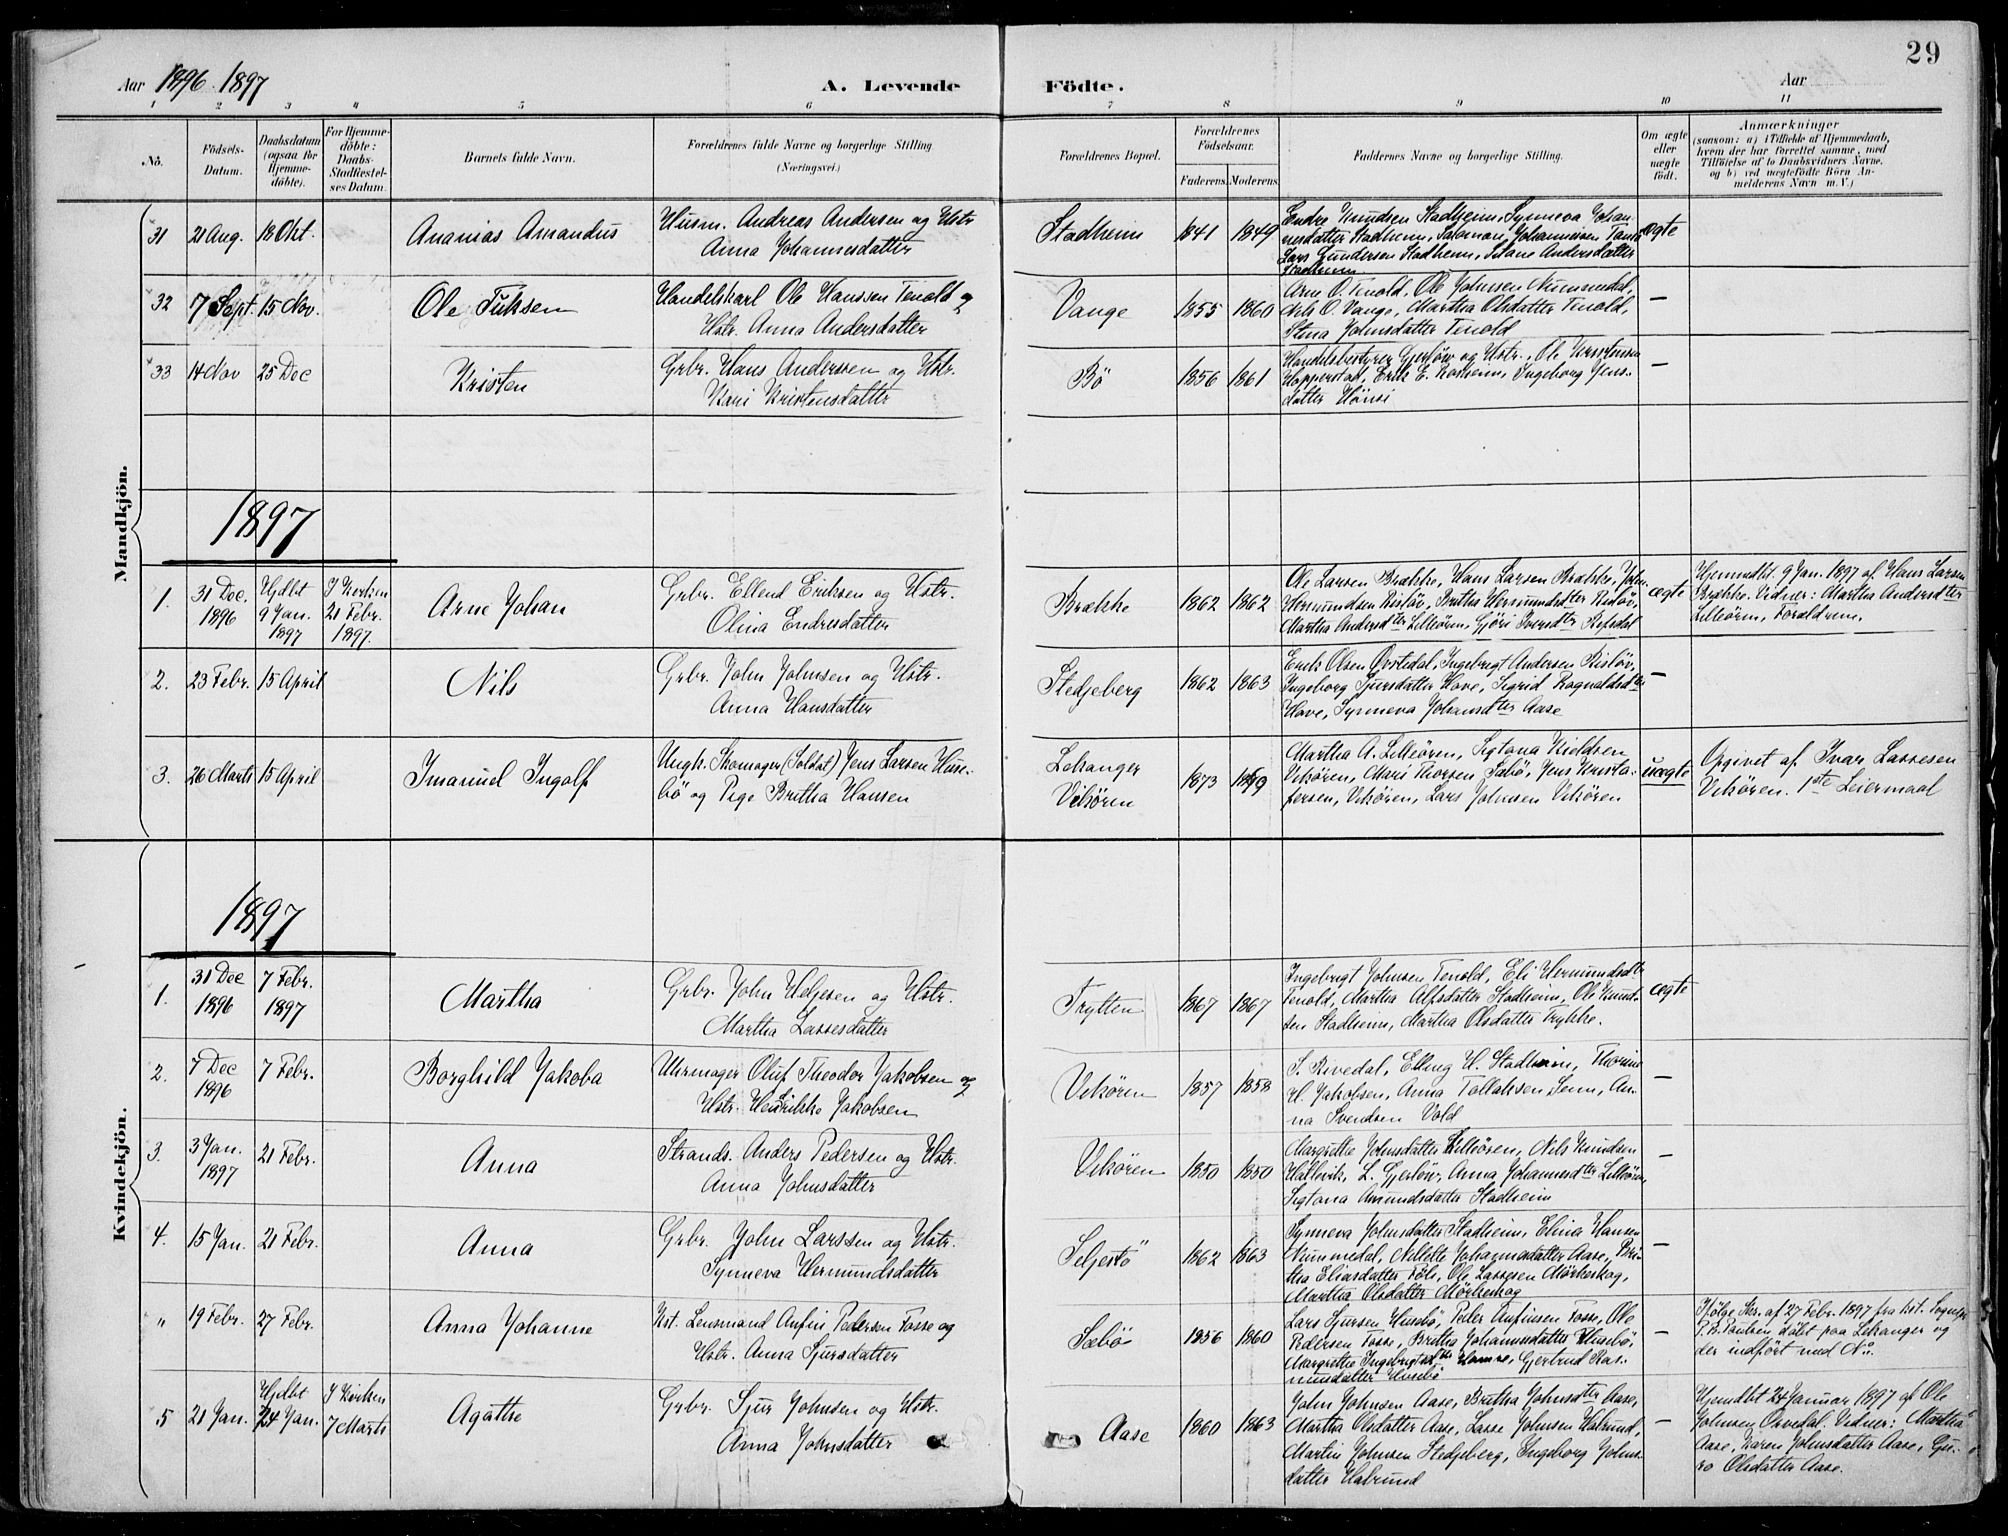 29
Aar 1896 1897
A. Levende Födte.
Aar
1 2 3 4 5 6 7 8 9 10 11
No.
Födsels-Datum.
Daabsdatum (ogsaa for Hjemme-döbte).
For Hjemme-döbte: Daabs-Stadfæstel-ses Datum.
Barnets fulde Navn.
Forældrenes fulde Navne og borgerlige Stilling (Næringsvei.)
Forældrenes Bopæl.
Forældrenes Födselsaar.
Faderens. Moderens.
Faddernes Navne og borgerlige Stilling.
Om ægte eller uægte födt.
Anmærkninger
(saasom: a) i Tilfælde af Hjemmedaab,
hvem der har forrettet samme, med
Tilföielse af to Daabsvidners Navne.
og b) ved uægtefödte Börn An-
melderens Navn m. V.)
Mandkjön.
31 21 Aug. 18 Okt. Ananias Amandus
Husm. Andreas Andersen og Hstr
Anna Johannesdatter
Stadheim 1841 1849
Endre Knudsen Stadheim, Synneva Johan-
nesdatter Stadheim, Salomon Johannesen
Lars Gundersen Stadheim, Andersdatter
Stadheim
ægte
32 7 Sept. 15 Nov. Ole
Handelskarl Ole Hanssen Tenold og
Hstr. Anna Andersdatter
Vange 1855 1860
Arne O. Tenold, Ole Johnsen Nummedal,
Nils O. Vange, Martha Olsdatter Tenold,
Stina Johnsdatter Tenold
—
33 14 Nov 25 Dec Kristen
Grbr. Hans Anderssen og Hstr.
Kari Kristensdatter
Bö 1856 1861
Handelsbestyrer Gjerlöw og Hstr., Ole Kristensen
Hopperstad, Erik E. Ingeborg Jens-
datter
—
1897
1. 31 Dec. 1896 Hjdbt 9 Jan. 1897 I Kirken 21 Febr. 1897. Arne Johan
Grbr. Ellend Eriksen og Hstr.
Olina Endresdatter
Brække 1862 1862
Ole Larsen Brække, Hans Larsen Brække, John
Hermundsen Risløv, Britha Hermundsdter Risløv,
Martha Andersdter Lilleören, Gjöri Iversdter Refsdal
ægte
Hjemmdbt. 9 Jan. 1897 af Hans Larsen
Brække. Vidner: Martha Andersdter
Lilleören, Forældrene.
2. 23 Febr. 15 April Nils
Grbr. John Johnsen og Hstr.
Anna Hansdatter
Stedjeberg 1862 1863
Erik Olsen Øvstedal, Ingebrigt Andersen Risløv,
Ingeborg Sjursdatter Hove, Sigrid Ragnaldsdter
Hove, Synneva Johansdter Aase
—
3. 26 Marts 15 April Imanuel Ingolf
Ungk. Skomager (Soldat) Jens Larsen Huse-
bö og Pige Britha Hansen
Lekanger
Vikören
1873
Martha A. Lilleören, Sigtona Kieldsen
Vikören, Mari Thorsen Sæbö, Jens Kristo-
fersen, Vikören, Lars Johnsen Vikören
uægte
Opgivet af Ivar Lassesen
Vikören. 1ste Leiermaal
Kvindekjön.
1897
1. 31 Dec 1896 7 Febr. 1897 Martha
Grbr. John Heljesen og Hstr.
Martha Lassesdatter
Trytten 1867 1867
Ingebrigt Johnsen Tenold, Eli Hermundsdter
Tenold, Martha Alfsdatter Stadheim, Ole Knud-
sen Stadheim, Martha Olsdatter Trykke.
ægte
2. 7 Dec 1896 7 Febr. Borghild Jakoba
Uhrmager Oluf Theodor Jakobsen og
Hstr. Hendrikke Jakobsen
Vikören 1857 1858
S. Rivedal, Elling H. Stadheim, Thomine
H. Jakobsen, Anna Tollaksen Senn, An-
na Svendsen Vold
—
3. 3 Jan. 1897 21 Febr. Anna
Strands. Anders Pedersen og Hstr.
Anna Johnsdatter
Vikören 1850 1850
Margrethe Johnsdatter Lilleören, Nils Knudsen
Hallvik, L. Gjerlöw, Anna Johannesdter Lilleören,
Sigtona Amundsdatter Stadheim
—
4. 15 Jan. 21 Febr. Anna
Grbr. John Larssen og Hstr.
Synneva Hermundsdatter
Seljestö 1862 1863
Synneva Johnsdatter Stadheim, Elina Hansen
Nummedal, Johannesdatter Aase, Bri-
tha Eliasdatter Föli, Ole Lassesen Mörkeskog,
Martha Olsdatter Mörkeskog
—
" 19 Febr. 27 Febr. Anna Johanne
Kst. Lensmand Anfin Pedersen Fosse og
Hstr. Anna Sjursdatter
Sæbö 1856 1860
Lars Sjursen Husebö, Peter Anfinsen Fosse, Ole
Pedersen Fosse, Britha Johannesdatter Husebö,
Margrethe Ingebrigtsdter Hamre, Gjertrud Ras-
musdatter Husebö
—
Ifölge Skr. af 27 Febr. 1897 fra kst. Sognepr.
P. B. Poulsen döbt paa Lekanger og
der indfört med No.
5 21 Jan. Hjdbt 24 Jan. I Kirken 7 Marts Agathe
Grbr. Sjur Johnsen og Hstr.
Anna Johnsdatter
Aase 1860 1863
John Johnsen Aase, Britha Johnsdter Aase,
Martha Olsdatter Aase, Lasse Johnsen Halrund,
Martin Johnsen Stedjeberg, Ingeborg Johns-
datter Halrund
—
Hjemdbt 24 Januar 1897 af Ole
Johnsen Orvedal. Vidner: Martha
Aase, Karen Johnsdatter Aase, Gu-
ro Olsdatter Aase.